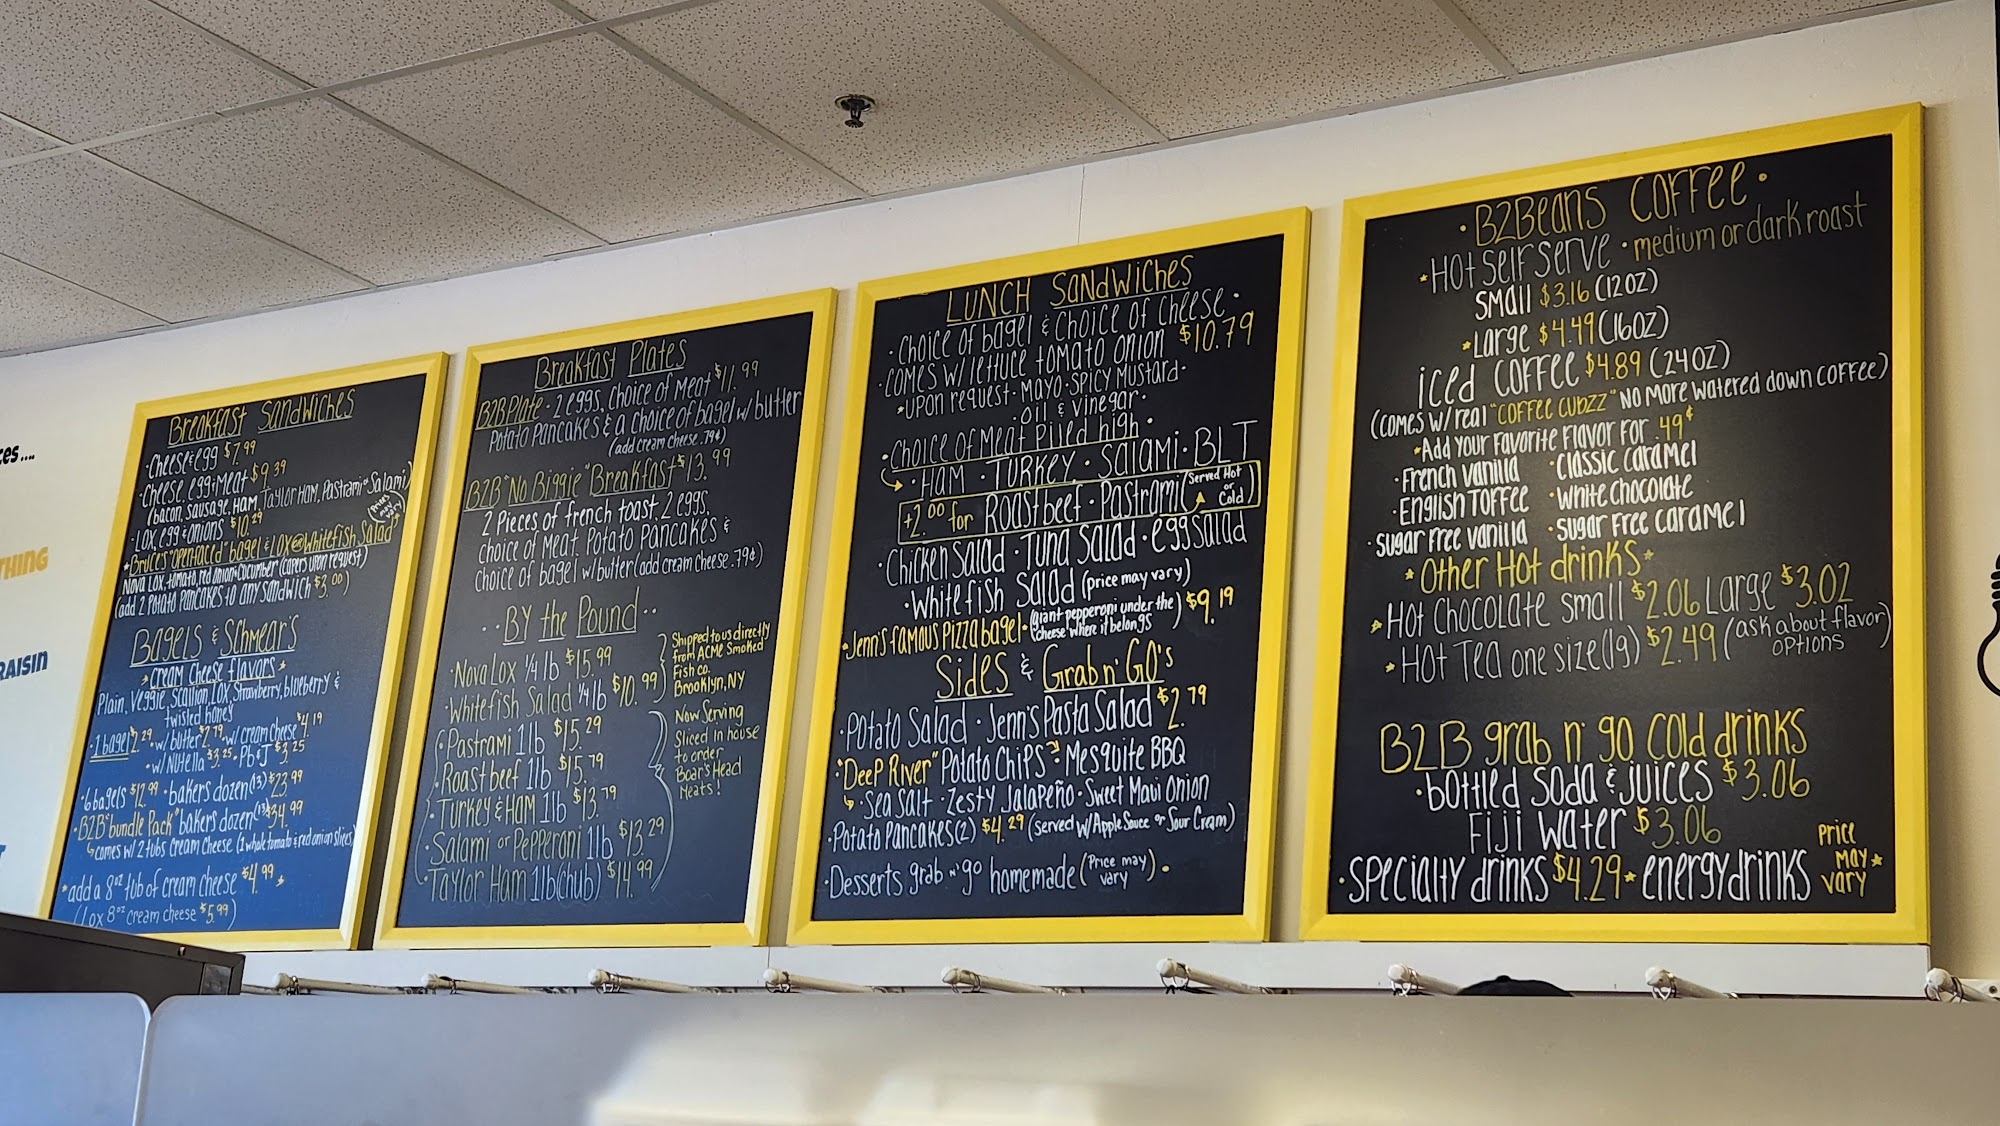 es....
THING
RAISIN
Breakfast Sandwiches
·Cheese & egg $7.99
·Cheese, egg & Meat $9.39
(bacon, sausage, HAM, Taylor HAM, Pastrami or Salami)
·Lox, egg & onions $10.29
Prices may vary
*Bruce's "openfaced" bagel & LOX or Whitefish Salad*
Nova Lox, tomato, red onion & Cucumber (capers upon request)
(add 2 Potato Pancakes to any sandwich $3.00)
Bagels & Schmear's
*cream cheese flavors*
Plain, Veggie, Scallion, Lox, Strawberry, blueberry &
twisted honey
·1 bagel $1.29 · w/ butter $2.79 · w/ cream cheese $4.19
· w/ Nutella $3.25 · Pb & J $3.25
·6 bagels $12.99 · bakers dozen (13) $23.99
·B2B "bundle Pack" bakers dozen (13) $34.99
comes w/ 2 tubs cream cheese (1 whole tomato & red onion slices)
*add a 8oz tub of cream cheese $4.99*
(Lox 8oz cream cheese $5.99)
Breakfast Plates
B2B Plate · 2 eggs, choice of Meat $11.99
Potato Pancakes & a choice of bagel w/ butter
(add cream cheese .79¢)
B2B "No Biggie" Breakfast $13.99
2 Pieces of french toast, 2 eggs,
choice of Meat, Potato Pancakes &
choice of bagel w/ butter (add cream cheese .79¢)
..BY the Pound..
·Nova Lox 1/4 lb $15.99
·Whitefish Salad 1/4 lb $10.99
Shipped to us directly
from ACME Smoked
Fish co.
Brooklyn, NY
·Pastrami 1lb $15.29
·Roast beef 1lb $15.79
·Turkey & HAM 1lb $13.79
·Salami or Pepperoni 1lb $13.29
·Taylor Ham 1lb (chub) $14.99
Now Serving
Sliced in house
to order
Boar's Head
Meats!
LUNCH Sandwiches
·Choice of bagel & Choice of Cheese·
·comes w/ lettuce tomato onion $10.79
*upon request · Mayo · Spicy Mustard·
·oil & vinegar·
·Choice of Meat Piled high·
·HAM · TURKEY · Salami · BLT
+2.00 for Roast beef · Pastrami (Served Hot or Cold)
·Chicken Salad · Tuna Salad · egg salad
·Whitefish Salad (price may vary)
·Jenn's famous Pizza bagel· (giant pepperoni under the cheese where it belongs) $9.19
Sides & Grab n' Go's
·Potato Salad · Jenn's Pasta Salad $2.79
·"Deep River" Potato Chips · Mesquite BBQ
·Sea Salt · Zesty Jalapeño · Sweet Maui Onion
·Potato Pancakes (2) $4.29 (served w/ Apple Sauce or Sour Cream)
·Desserts grab n' go homemade (Price may vary)·
·B2Beans Coffee·
*Hot Self Serve · medium or dark roast
Small $3.16 (12oz)
*Large $4.49 (16oz)
iced coffee $4.89 (24oz)
(comes w/ real "Coffee Cubzz" No more watered down coffee)
*Add your favorite flavor for .49¢
·French vanilla ·classic caramel
·English Toffee ·white chocolate
·Sugar Free vanilla ·Sugar Free caramel
*Other Hot drinks*
*Hot Chocolate small $2.06 Large $3.02
*Hot Tea one size (lg) $2.49 (ask about flavor options)
B2B grab n' go cold drinks
·bottled soda & juices $3.06
Fiji Water $3.06
·specialty drinks $4.29 *energy drinks Price may vary*